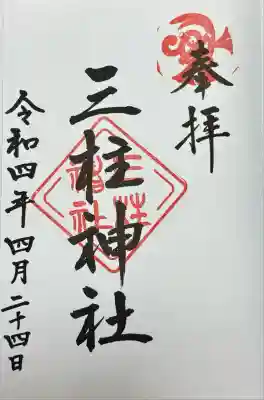 奉拝
三柱神社
三柱神社
令和四年四月二十四日